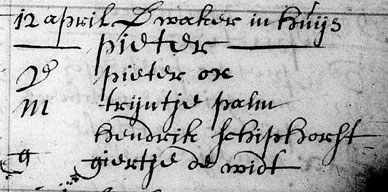 12 april D waker in huijs
pieter
V pieter ox
M trijntje palm
hendrik schiphorst
G giertje de widt